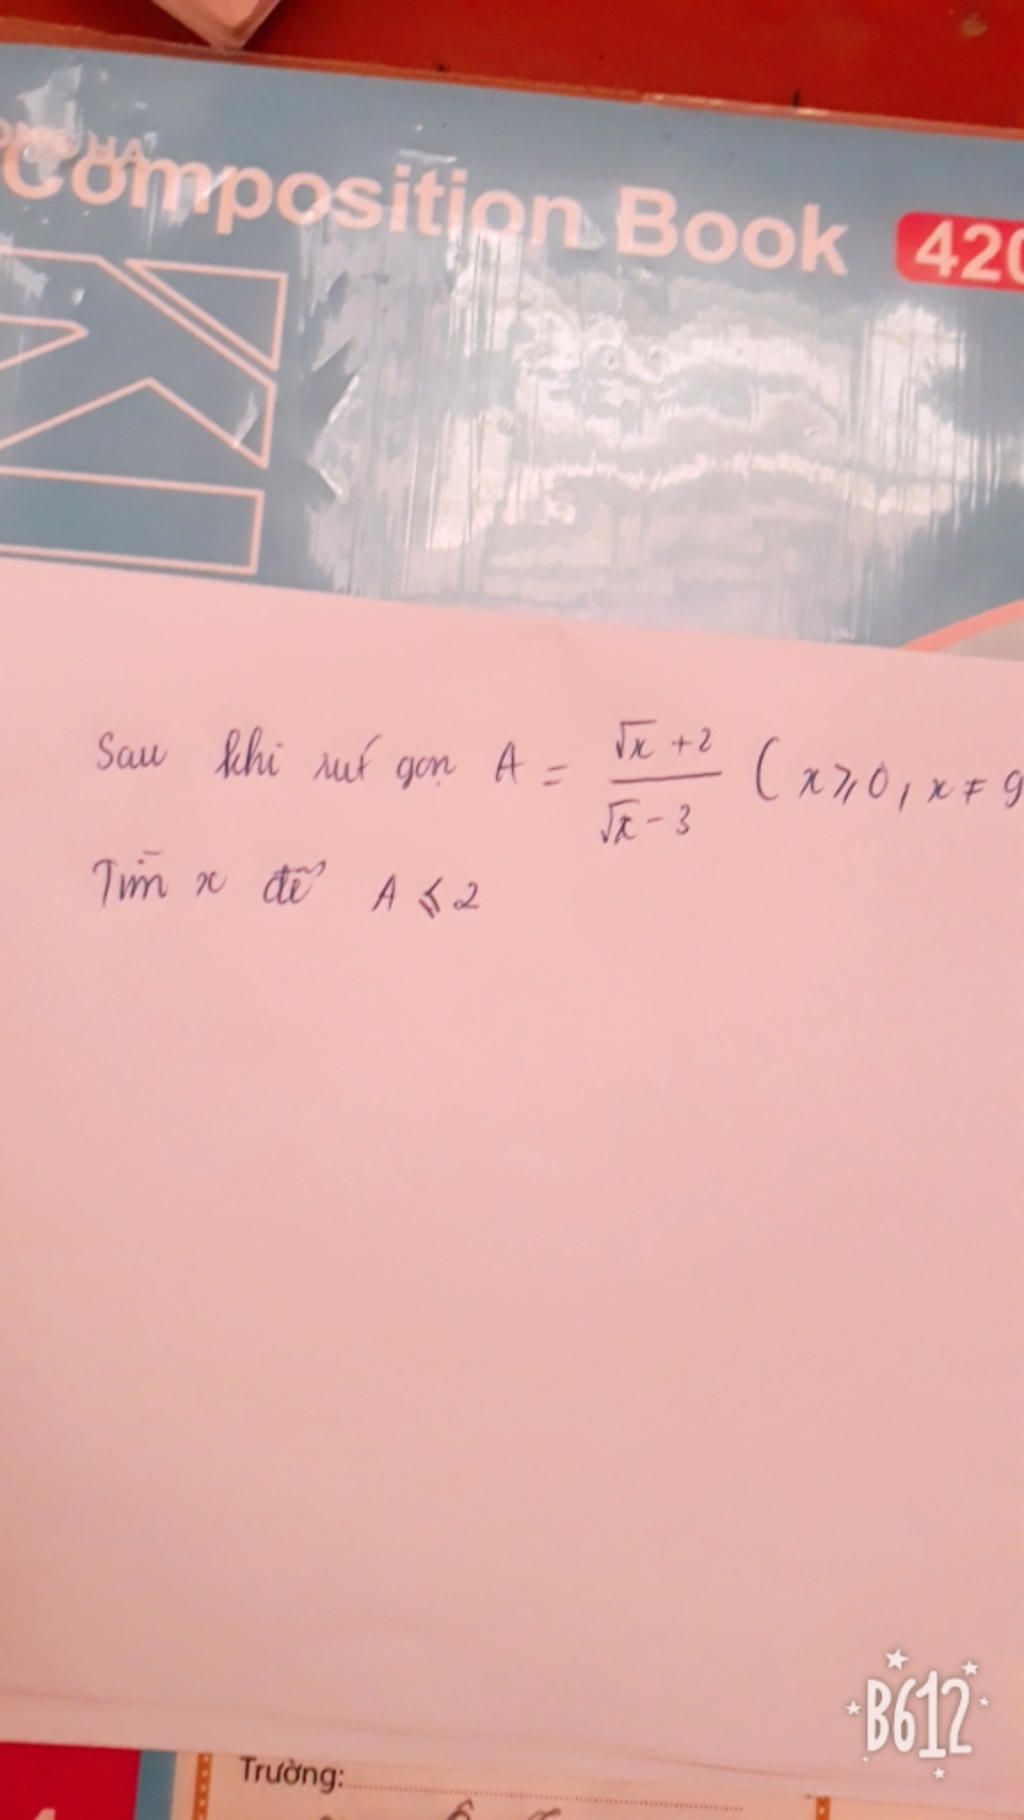 Composition Book 420
Sau khi rút gọn A = \frac{\sqrt{x}+2}{\sqrt{x}-3} (x ⩾ 0, x ≠ 9
Tìm x để A ⩽ 2
B612
Trường: